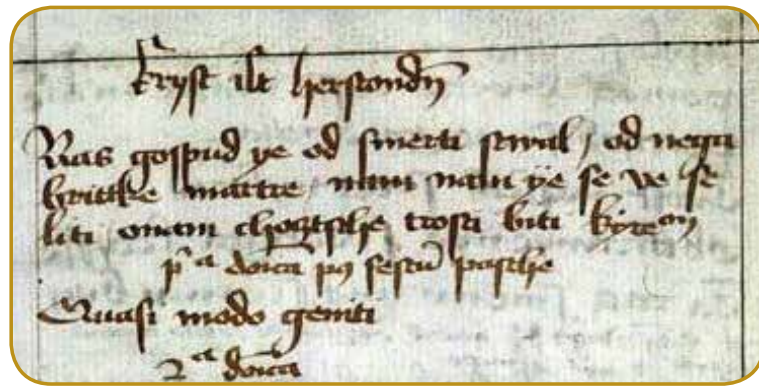 kryst ist herstandn̄
Nas gospud ye od smerti stwal / od nega
britke martre / nam nam ye se ve se
liti onam choztsche trosti biti kyre
pᵃ doīca festū pasche
Quasi modo geniti
2ᵃ doīca